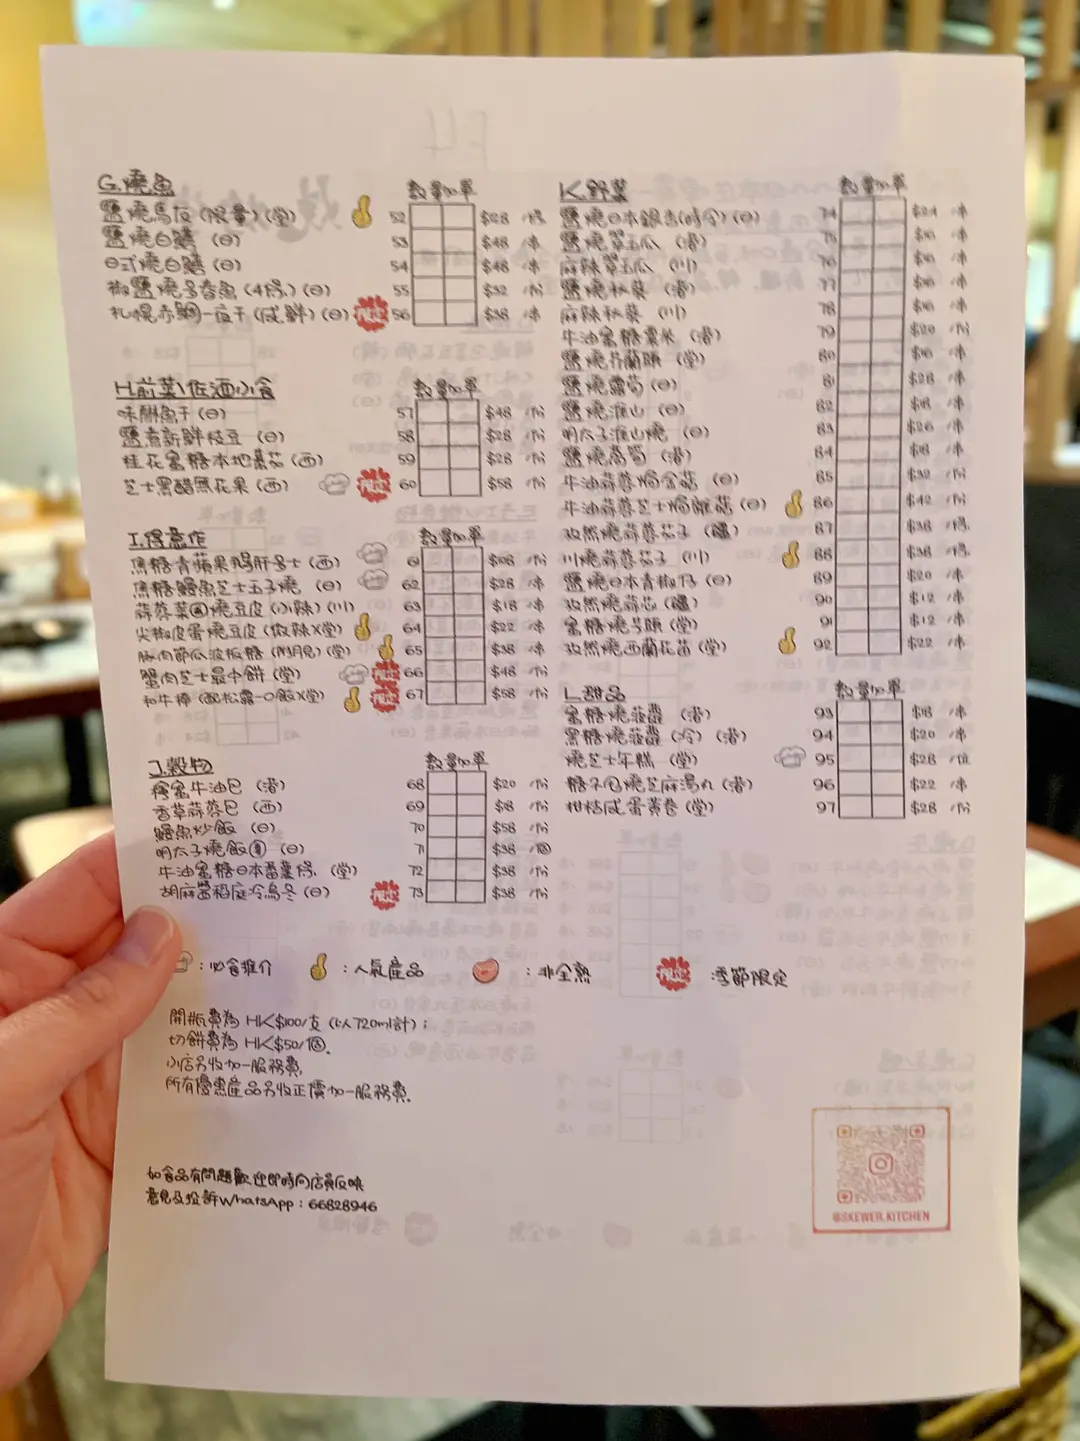 G.燒魚 數量加單
鹽燒馬友(限量)(堂) 52 $28 /條
鹽燒白鱔 (日) 53 $48 /串
日式燒白鱔 (日) 54 $48 /串
椒鹽燒多春魚 (4條) (日) 55 $32 /份
札幌赤鯛一夜干 (咸鮮) (日) 56 $38 /串
H.前菜\佐酒小食 數量加單
味醂魚干 (日) 57 $48 /份
鹽煮新鮮枝豆 (日) 58 $28 /份
桂花蜜糖本地蕃茄 (西) 59 $28 /份
芝士黑醋無花果 (西) 60 $58 /份
I.得意作 數量加單
焦糖青蘋果鴨肝多士 (西) 61 /份
焦糖鰻魚芝士玉子燒 (日) 62 $28 /串
蒜蓉菜圃燒豆皮 (小辣) (川) 63 $18 /串
尖椒皮蛋燒豆皮 (微辣)(堂) 64 $22 /串
豚肉節瓜波板糖 (附月見) (堂) 65 $38 /串
蟹肉芝士最中餅 (堂) 66 $48 /份
和牛棒 (配松露一口飯)(堂) 67 $58 /份
J.穀物 數量加單
煙蜜牛油包 (港) 68 $20 /份
香草蒜蓉包 (西) 69 $18 /份
鰻魚炒飯 (日) 70 $58 /份
明太子燒飯 (日) 71 $38 /個
牛油蜜糖日本番薯條 (堂) 72 $38 /份
胡麻醬稻庭冷烏冬 (日) 73 $38 /份
K.野菜 數量加單
鹽燒日本銀杏(時令) (日) 74 $24 /串
鹽燒翠玉瓜 (港) 75 $16 /串
麻辣翠玉瓜 (川) 76 $16 /串
鹽燒秋葵 (港) 77 $16 /串
麻辣秋葵 (川) 78 $16 /串
牛油蜜糖粟米 (港) 79 $20 /份
鹽燒芥蘭頭 (堂) 80 $16 /串
鹽燒露筍 (日) 81 $28 /串
鹽燒淮山 (日) 82 $18 /串
明太子淮山燒 (日) 83 $26 /串
鹽燒萵筍 (港) 84 $18 /串
牛油蒜蓉焗金菇 (日) 85 $32 /份
牛油蒜蓉芝士焗雜菇 (日) 86 $42 /份
孜然燒蒜蓉茄子 (疆) 87 $38 /條
川燒蒜蓉茄子 (川) 88 $38 /條
鹽燒日本青椒仔 (日) 89 $20 /串
孜然燒蒜芯 (疆) 90 $12 /串
蜜糖燒芋頭 (堂) 91 $12 /串
孜然燒西蘭花苗 (堂) 92 $22 /串
L.甜品 數量加單
蜜糖燒菠蘿 (港) 93 $18 /串
黑糖燒菠蘿 (冷) (港) 94 $20 /串
燒芝士年糕 (堂) 95 $28 /位
糖不甩燒芝麻湯丸 (港) 96 $22 /串
柑桔咸蛋黃卷 (堂) 97 $28 /份
: 必食推介 : 人氣產品 : 非全熟 : 季節限定
開瓶費為 HK$100/支 (以720ml計) ;
切餅費為 HK$50/個.
小店另收加一服務費.
所有優惠產品另收正價加一服務費.
如食品有問題歡迎即時向店員反映
意見及投訴WhatsApp : 66828946
@SKEWER.KITCHEN